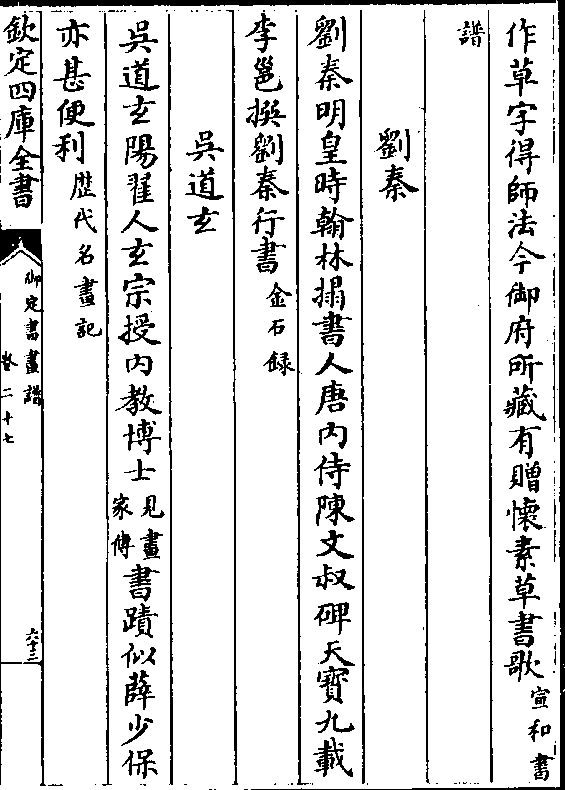 作草字得師法今御府所藏有贈懷素草書歌宣和書
譜
劉秦
劉秦明皇時翰林搨書人唐內侍陳文叔碑天寶九載
李邕撰劉秦行書金石録
吳道玄
吳道玄陽翟人玄宗授內教博士見畫家傳書蹟似薛少保
亦甚便利歷代名畫記
欽定四庫全書
御定書畫譜
卷二十七
六十三